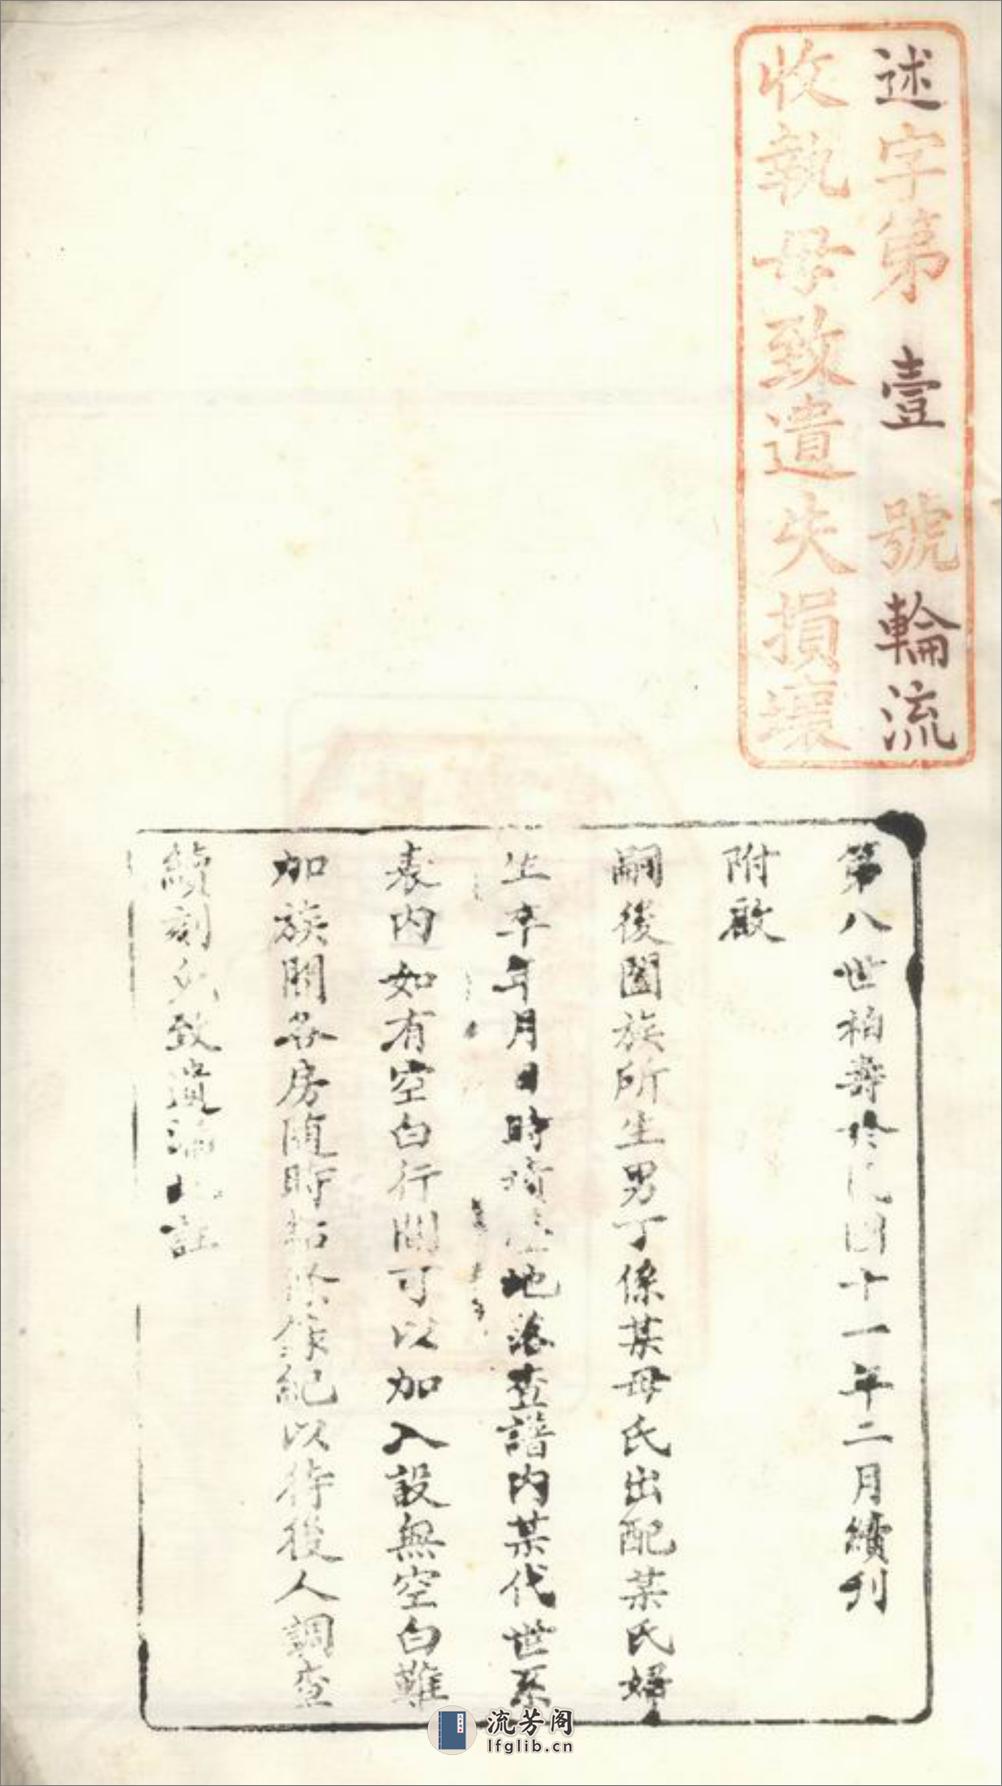 述字第壹號輪流
收執毋致遺失損壞
第八世柏壽於民國十一年二月續刊
附啟
嗣後闔族所生男丁係某母氏出配某氏婦
生卒年月日時墳塋地落查譜內某代世系
表內如有空白行間可以加入設無空白難
加族開各房隨時條紀以待後人調查
續刻免致遺漏此註
流芳阁
lfglib.cn